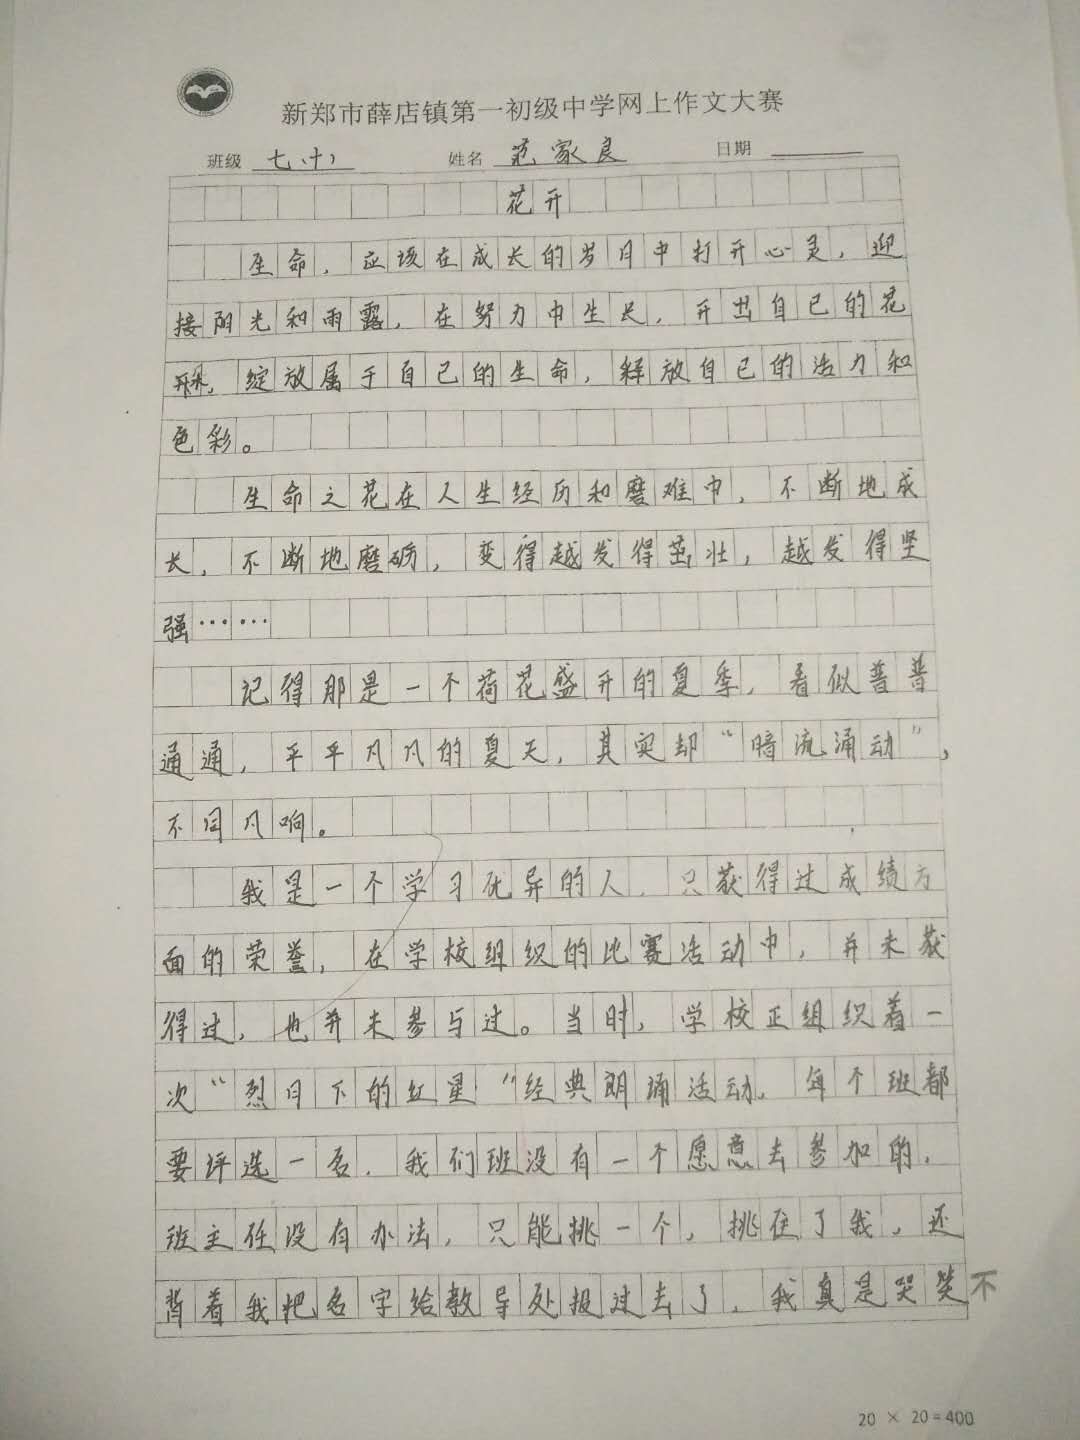 新郑市薛店镇第一初级中学网上作文大赛
班级 七(十) 姓名 范家良 日期
花开
生命，应该在成长的岁月中打开心灵，迎
接阳光和雨露，在努力中生长，开出自己的花
绽放属于自己的生命，释放自己的活力和
色彩。
生命之花在人生经历和磨难中，不断地成
长，不断地磨砺，变得越发得茁壮，越发得坚
强……
记得那是一个荷花盛开的夏季，看似普普
通通，平平凡凡的夏天，其实却“暗流涌动”，
不同凡响。
我是一个学习优异的人，只获得过成绩方
面的荣誉，在学校组织的比赛活动中，并未获
得过，也并未参与过。当时，学校正组织着一
次“烈日下的红星”经典朗诵活动，每个班都
要评选一名，我们班没有一个愿意去参加的，
班主任没有办法，只能挑一个，挑在了我，还
背着我把名字给教导处报过去了，我真是哭笑不
20 × 20=400